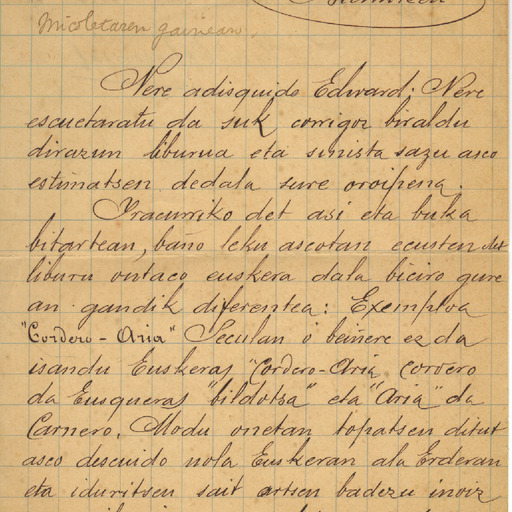 Micoletaren gainean.
Nere adisquide Edward: Nere
escuetaratu da suk corrigoz biraldu
dirazun liburua eta sinista sazu asco
estimatsen dedala sure oroipena.
Iracurriko det asi eta buka
bitartean, baño leku ascotan ecusten det
liburu ontaco euskera dala biciro gure
an gandik diferentea: Exemploa
"Cordero-Aria" Seculan o beiñere ez da
isandu Euskeras "Cordero-Aria, cordero
da Eusqueras "bildotsa" eta "Aria" da
Carnero. Modu onetan topatsen ditut
asco descuido nola Euskeran ala Erderan
eta iduritsen sait artsen badezu inoiz